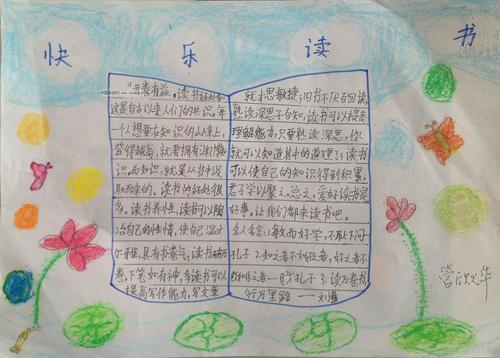 快乐读书
"开卷有益,读书好处多
这是自古以来人们的共识。每
一个人想要在知识的山峰上,
登得越高,就要拥有渊博的
识,而知识,就是从书中汲
取而来的。读书的好处很
多。读书养性,读书可以陶
冶自己的性情,使自己温文
尔雅,具有书卷气;读书破万
卷,下笔如有神,多读书可以
提高写作能力,写文章
就才思敏捷;旧书不厌百回读,
熟读深思子自知,读书可以提高
理解能力,只要熟读深思,你
就可以知道其中的道理了;读书
可以使自己的知识得到积累,
君子学以聚之。总之,爱好读书是
好事。让我们都来读书吧。
名人名言:1敏而好学,不耻下问
孔子 2.知之者不如好之者,好之者不
如乐之者——孔子 3.读万卷书,
行万里路 ——刘彝